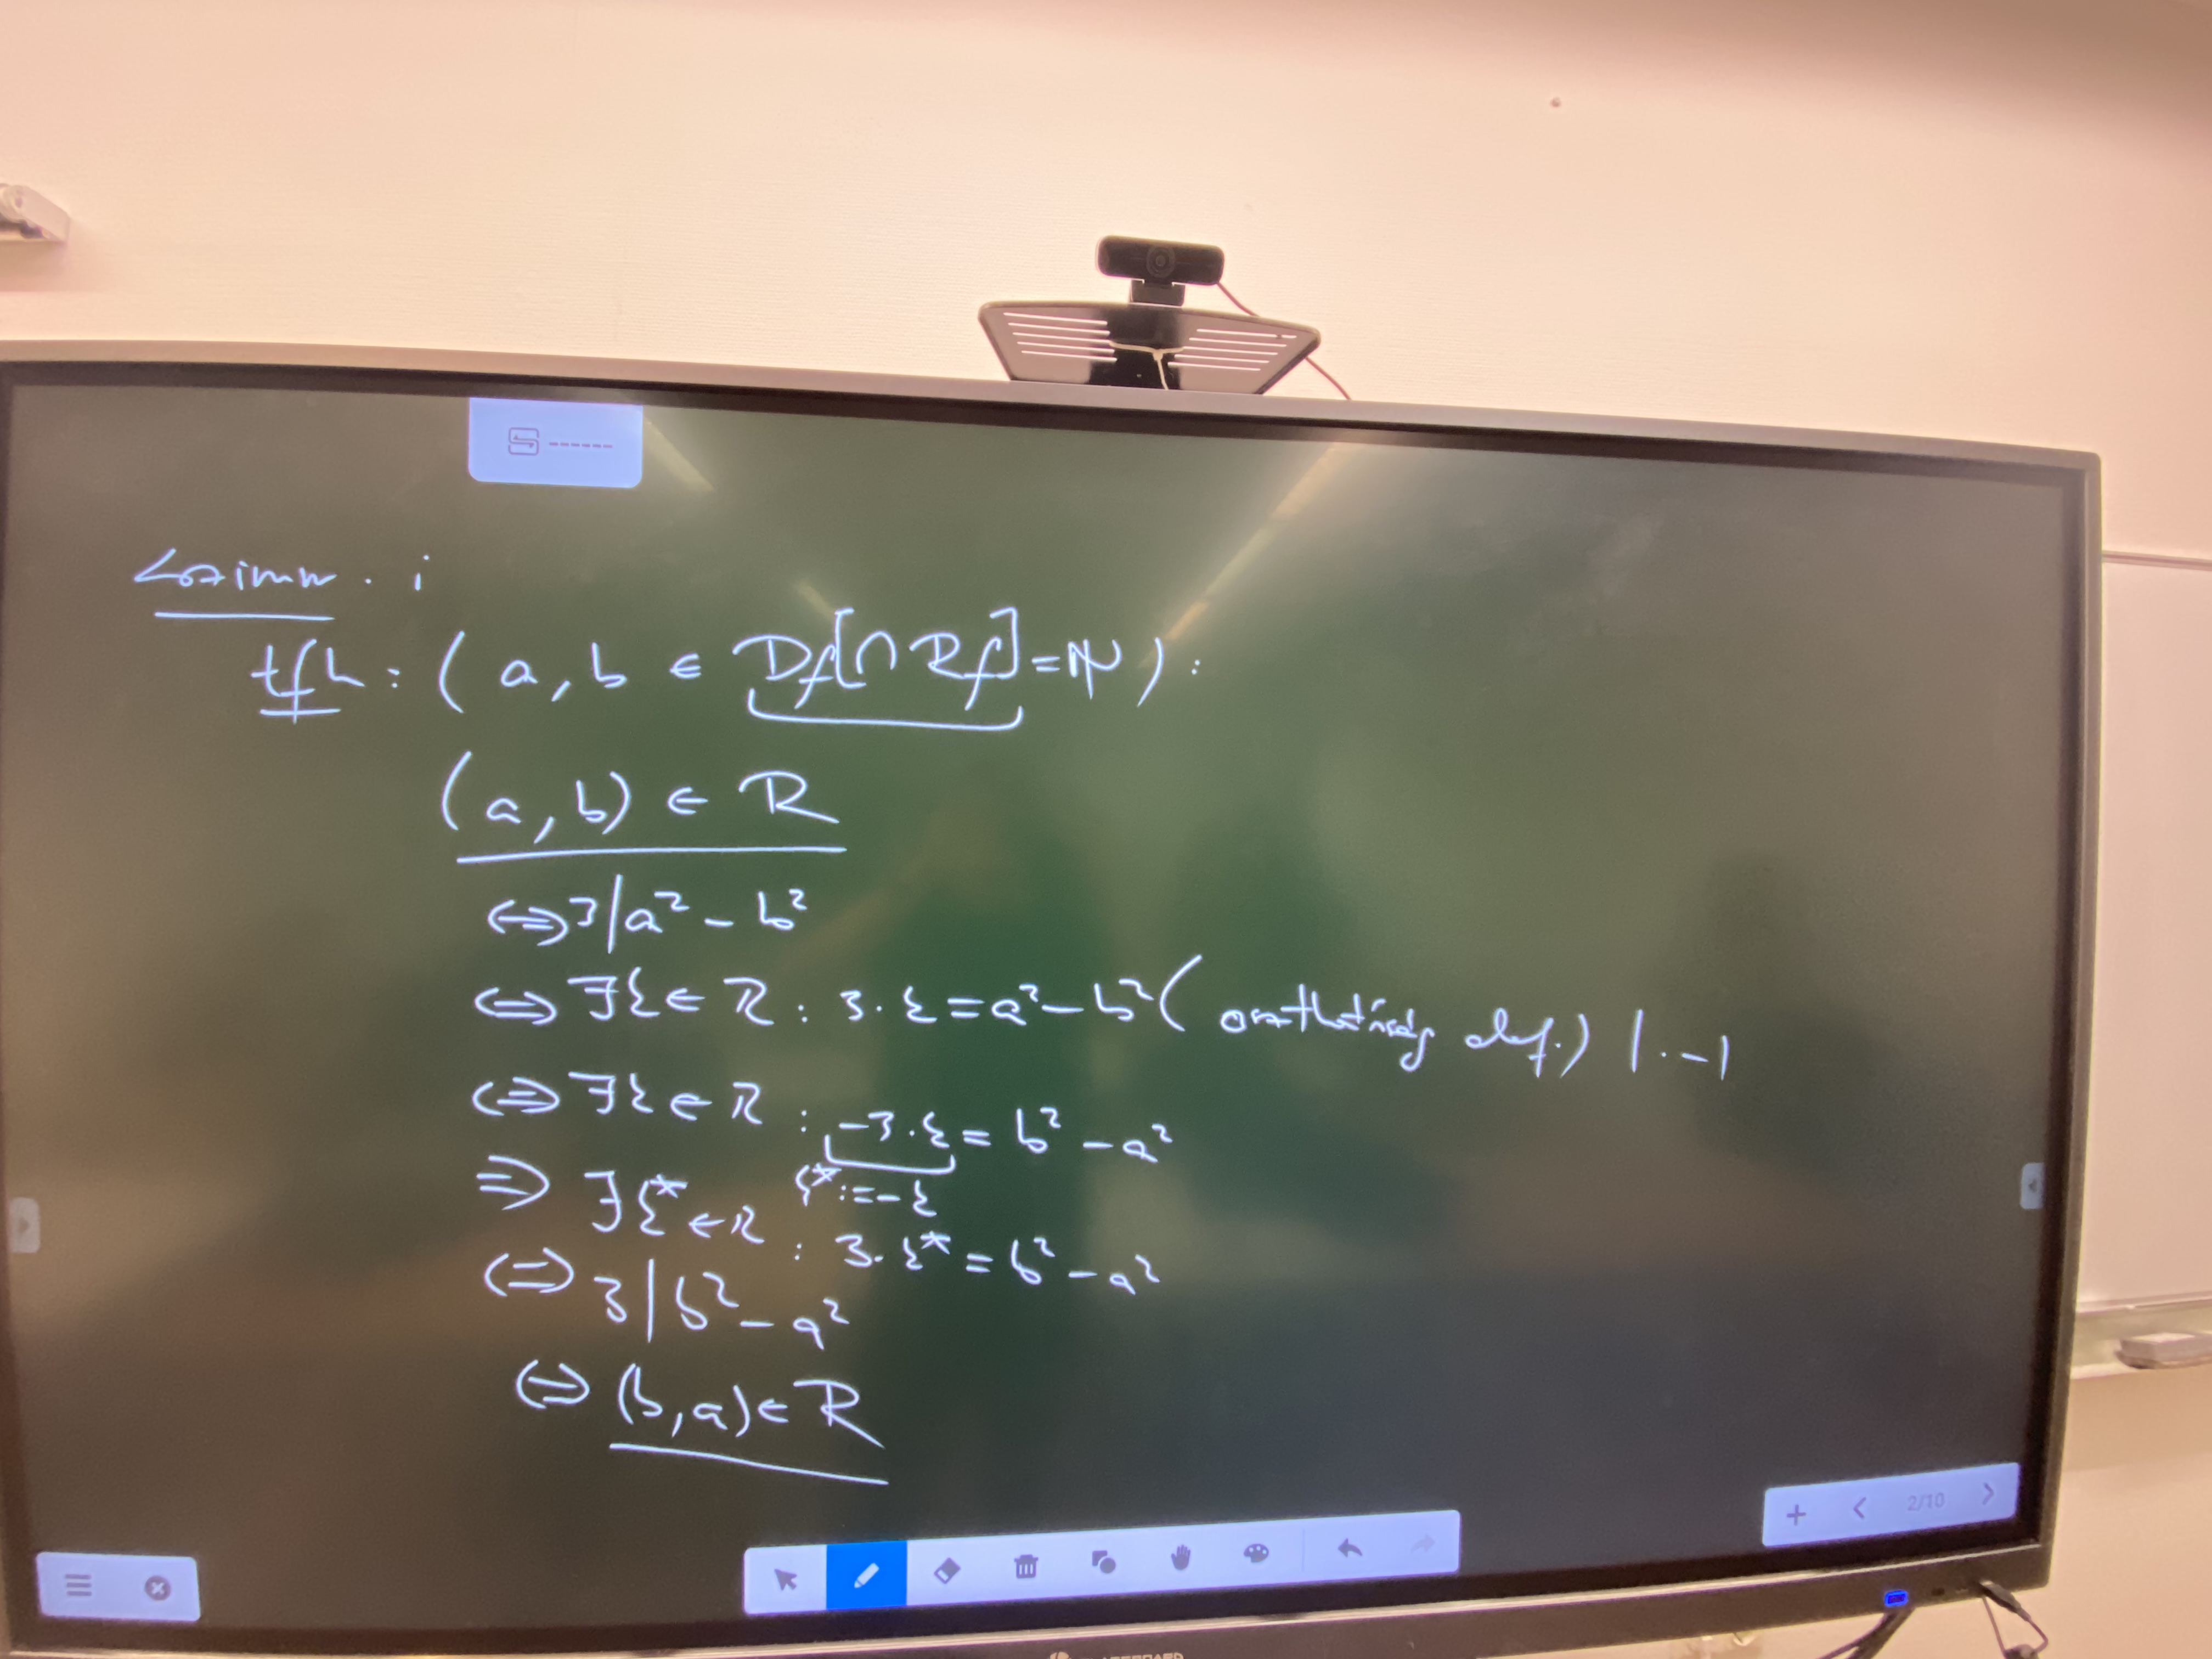 szimm. i
tfh: (a, b ∈ Df[∩Rf]=ℕ):
(a, b) ∈ R
⇔ 3|a² - b²
⇔ ∃ξ ∈ ℤ : 3·ξ = a² - b² (oszthatóság def.) |·-1
⇔ ∃ξ ∈ ℤ : -3·ξ = b² - a²
ξ* := -ξ
⇒ ∃ξ* ∈ ℤ : 3·ξ* = b² - a²
⇔ 3|b² - a²
⇔ (b, a) ∈ R
2/10